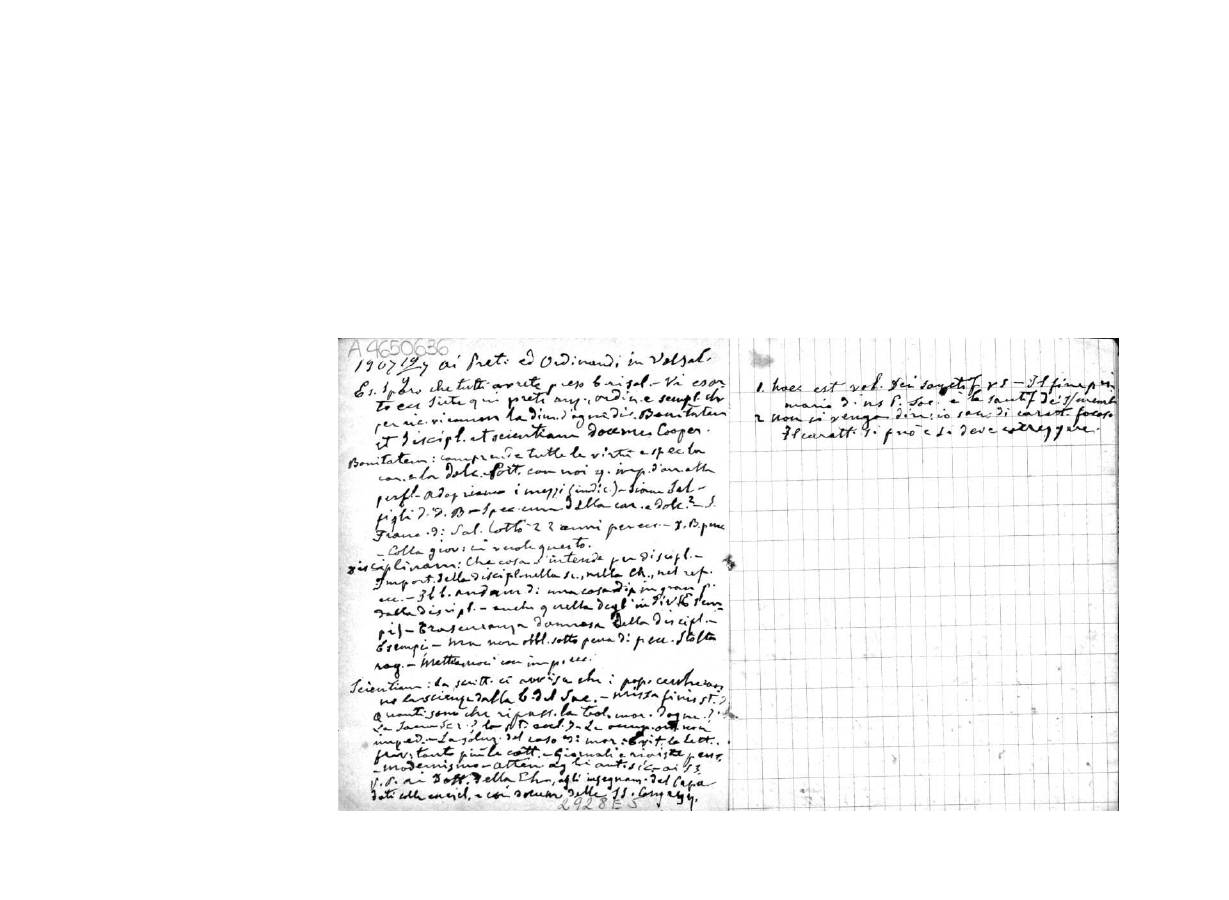 A4650636
1907 19/7 ai Preti ed Ordinandi in Valsal.
Es. Spero che tutti avrete preso
to ecc. Siete qui preti asp. ordin. e sempl. ch
per cui vi comm. la dim. d'ogni dì. Bonitatem
et discipl. et scientiam doce me. Cooper.
Bonitatem: comprende tutte le virtù e spec. la
car. e la dolc. Port. con noi q. imp. d'an. alla
perf. - Adopriamo i mezzi (indic.) - Siamo Sal. -
figli di D. B. - Spec. cura della car. e dolc.? - S.
Franc. di Sal. lottò 22 anni per ecc. - D. B. pure
- Colla giov. ci vuole questo.
Disciplinam: Che cosa s'intende per discipl. -
Import. della discipl. nella sc., nella Ch., nel ref.
ecc. - Il b. andam. di una casa dip. in gran p.
dalla discipl. - anche quella degl'individ.
- Trascuranza dannosa della discipl. -
Esempi - Ma non obbl. sotto pena di pecc. Stolta
rag. - Mettiamoci con imp. ecc.
Scientiam: La scritt. ci avvisa che i popi cercheranno
no la scienza dalla b. del Sac. - missa finis st.?
Quanti sono che ripass. la teol. mor. dogm.?
La Sacra Scr.? la st. eccl.? - Le occup. non
imped. - La soluz. del caso di mor. - Evit. le lett.
friv. tanto più le catt. - Giornali e riviste
- modernismo - atten. agli ant. sic. ai SS.
P. P. ai Dott. della Ch., agli insegnam. del Papa
dati colle encicl. e coi docum. delle SS. Congregg.
2928E5
1. Haec est vol. Dei sanctif. vs - Il fine pri
mario di ns P. Soc. è la santif. dei s/ membri
2 Non si venga dire: io son di caratt. focoso
Il caratt. si può e si deve correggere.